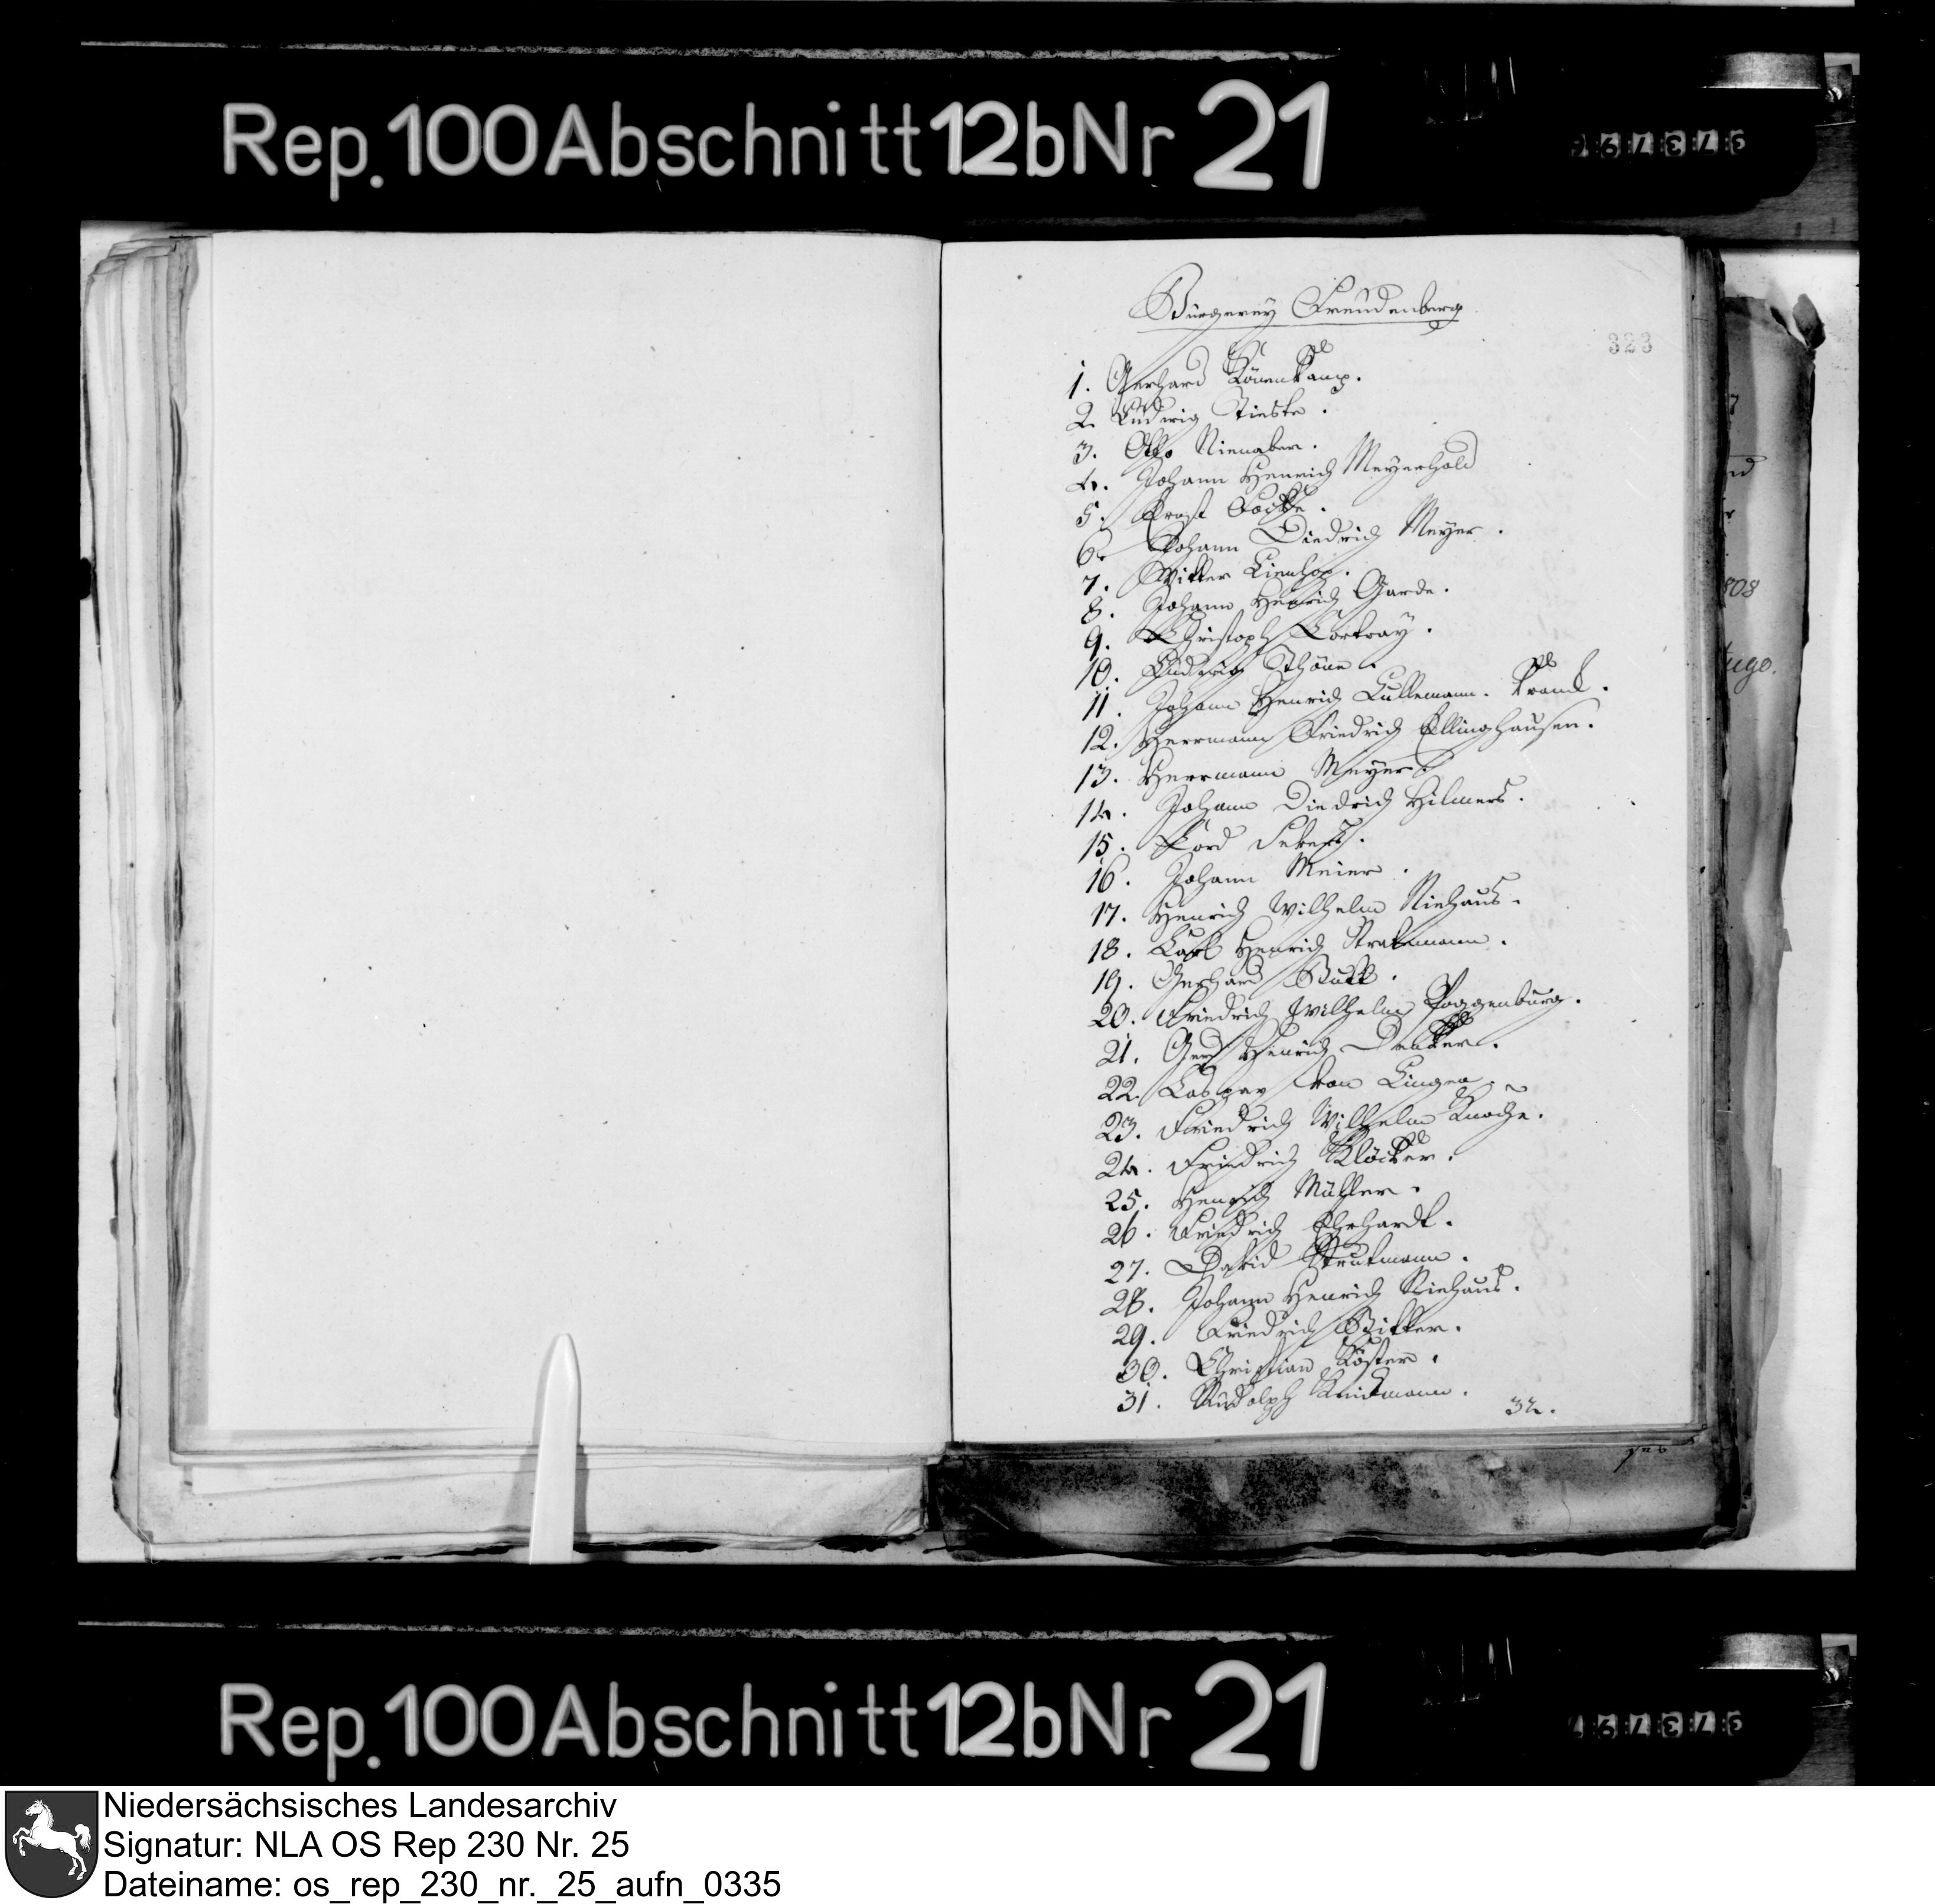 Rep. 100 Abschnitt 12b Nr 21
Bürgerey Freudenberg
323
1. Gerhard Könenkamp.
2. Ludwig Tieste.
3. Otto Nienaber.
4. Johann Henrich Meyerhold
5. Ernst Focke.
6. Johann Diedrich Meyer.
7. Lienhop.
8. Johann Henrich Garde.
9. Christoph Cortray.
10. Ludewig Thöne.
11. Johann Henrich Lullemann. krank.
12. Herrmann Friedrich Ellinghausen.
13. Herrmann Meyer.
14. Johann Diedrich Hilmers.
15. Cord
16. Johann Meier.
17. Henrich Wilhelm Niehaus.
18. Carl Henrich Stratemann.
19. Gerhard
20. Friedrich Wilhelm Poggenburg.
21. Gerd Henrich
22. Caspar von Lingen.
23. Friedrich Wilhelm Knoche.
24. Friedrich Klöcker.
25. Henrich Müller.
26. Friedrich Ehrhardt.
27. David Strutmann.
28. Johann Henrich Niehaus.
29. Friedrich Bitter.
30. Christian Köster.
31. Rudolph
32.
808
Rep. 100 Abschnitt 12b Nr 21
Niedersächsisches Landesarchiv
Signatur: NLA OS Rep 230 Nr. 25
Dateiname: os_rep_230_nr._25_aufn_0335